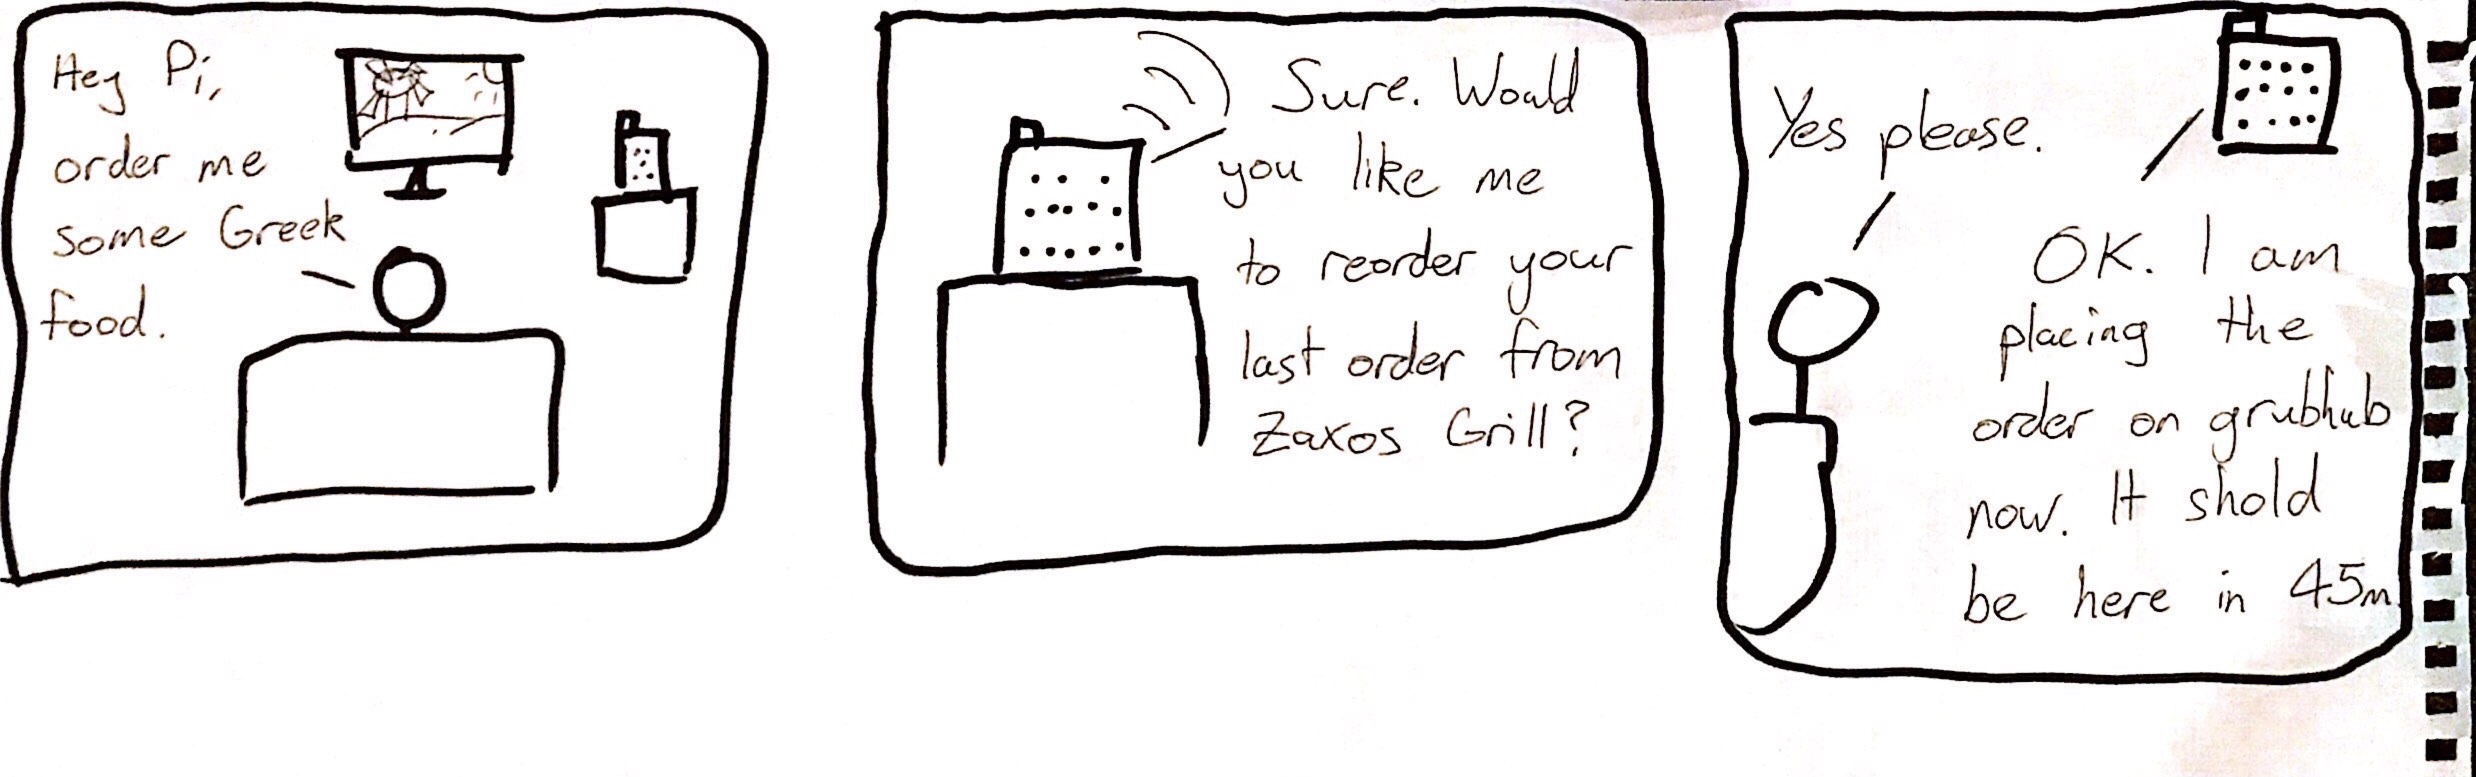 Hey Pi,
order me
some Greek
food.
Sure. Would
you like me
to reorder your
last order from
Zaxos Grill?
Yes please.
OK. I am
placing the
order on grubhub
now. It shold
be here in 45m